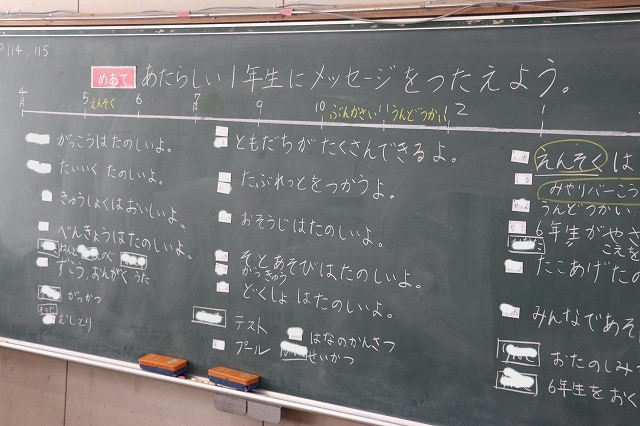 P114, 115
めあて あたらしい1年生にメッセージをつたえよう。
4月 5 えんそく 6 7 9 10 ぶんかさい 11 うんどうかい 12 1
がっこうはたのしいよ。
たいいく たのしいよ。
きゅうしょくはおいしいよ。
べんきょうはたのしいよ。
ずこう、おんがく うた
むしとり
ともだちが たくさんできるよ。
たぶれっとをつかうよ。
おそうじはたのしいよ。
そとあそびはたのしいよ。
がっきゅう
どくしょ はたのしいよ。
テスト はなのかんさつ
プール せいかつ
えんそく は
みやリバーこう
うんどうかい
6年生がやさ
こえを
たこあげたの
みんなであそ
おたのしみ
6年生をおく